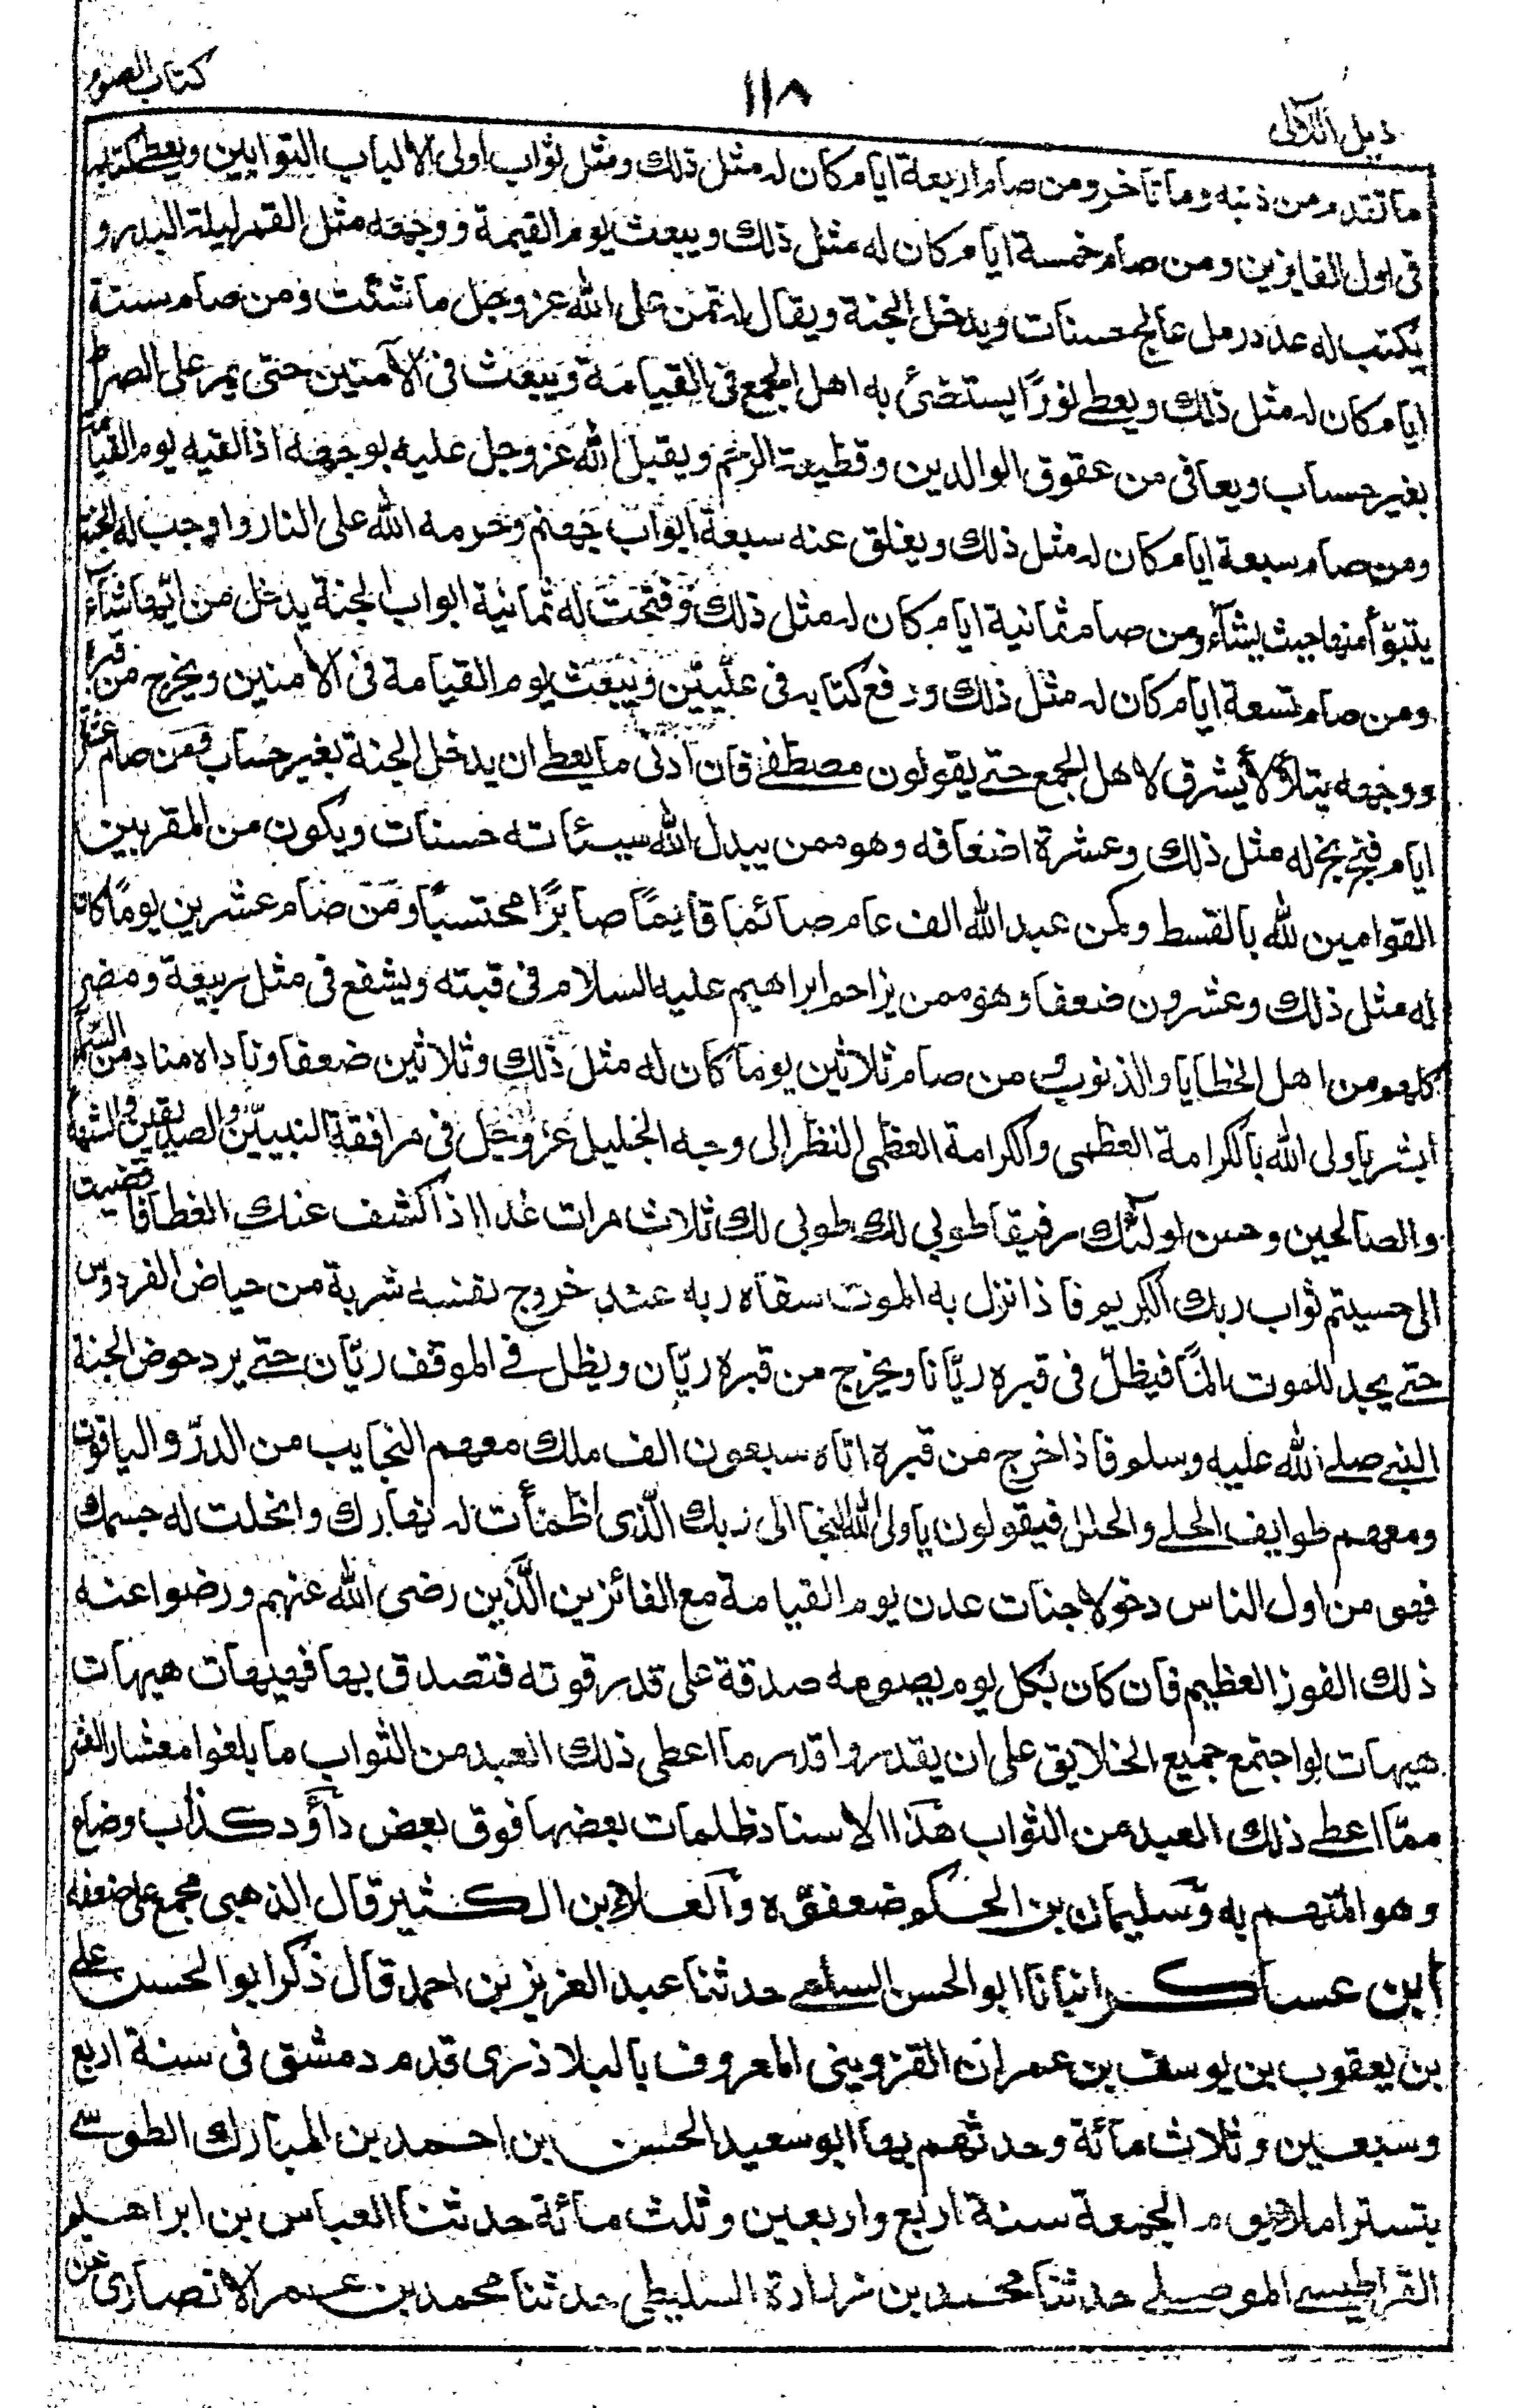 ذيل اللآلى
١١٨
كتاب الصوم
ما تقدم من ذنبه وما تأخر ومن صام اربعة ايام كان له مثل ذلك ومثل ثواب اولى الالباب التوابين ويعطى كتابه
فى اول الفايزين ومن صام خمسة ايام كان له مثل ذلك ويبعث يوم القيمة ووجهه مثل القمر ليلة البدر و
يكتب له عدد رمل عالج حسنات ويدخل الجنة ويقال له تمن على الله عز وجل ما شئت ومن صام ستة
ايام كان له مثل ذلك ويعطى نورًا يستضئ به اهل الجمع فى القيامة ويبعث فى الآمنين حتى يمر على الصراط
بغير حساب ويعافى من عقوق الوالدين وقطيعة الرحم ويقبل الله عز وجل عليه بوجهه اذا لقيه يوم القيامة
ومن صام سبعة ايام كان له مثل ذلك ويغلق عنه سبعة ابواب جهنم وحرمه الله على النار واوجب له الجنة
يتبوّأ منها حيث يشآء ومن صام ثمانية ايام كان له مثل ذلك وفتحت له ثمانية ابواب الجنة يدخل من ايّها شآء
ومن صام تسعة ايام كان له مثل ذلك ورفع كتابه فى علّيين ويبعث يوم القيامة فى الآمنين ويخرج من قبره
ووجهه يتلألأ يشرق لاهل الجمع حتى يقولون مصطفى فان ادنى ما يعطى ان يدخل الجنة بغير حساب ومن صام عشرة
ايام فبخ بخ له مثل ذلك وعشرة اضعافه وهو ممن يبدل الله سيئاته حسنات ويكون من المقربين
القوامين لله بالقسط وكمن عبد الله الف عام صائما قايمًا صابرًا محتسبًا ومن صام عشرين يومًا كان
له مثل ذلك وعشرون ضعفا وهو ممن يزاحم ابراهيم عليه السلام فى قبته ويشفع فى مثل ربيعة ومضر
كلهم من اهل الخطايا والذنوب ومن صام ثلاثين يوما كان له مثل ذلك وثلاثين ضعفا وناداه مناد من السّمآء
ابشر يا ولى الله بالكرامة العظمى والكرامة العظمى النظر الى وجه الجليل عز وجل فى مرافقة النبييّن والصديقين والشهدآء
والصالحين وحسن اولئك رفيقا طوبى لك طوبى لك ثلاث مرات غدا اذا كشف عنك الغطا فافضيت
الى جسيم ثواب ربك الكريم فاذا نزل به الموت سقاه ربه عند خروج نفسه شربة من حياض الفردوس
حتى يجد للموت المًا فيظلّ فى قبره ريّانا ويخرج من قبره ريّان ويظل فى الموقف ريّان حتى يرد حوض الجنة
النبى صلى الله عليه وسلم فاذا خرج من قبره اتاه سبعون الف ملك معهم النجايب من الدرّ والياقوت
ومعهم طوايف الحلى والحلل فيقولون يا ولى الله النجا الى ربك الّذى اظمأت له نهارك وانحلت له جسمك
فهو من اول الناس دخولا جنات عدن يوم القيامة مع الفائزين الّذين رضى الله عنهم ورضوا عنه
ذلك الفوز العظيم فان كان بكل يوم يصومه صدقة على قدر قوته فتصدق بها فهيهات هيهات
هيهات لو اجتمع جميع الخلايق على ان يقدروا قدر ما اعطى ذلك العبد من الثواب ما بلغوا معشار العشر
ممّا اعطى ذلك العبد من الثواب هذا الاسناد ظلمات بعضها فوق بعض داؤد كذاب وضاع
وهو المتهم به وسليمان بن الحكم ضعفوه والعلاء بن الكثير قال الذهبى مجمع على ضعفه
ابن عساكر انبانا ابو الحسن السلمى حدثنا عبد العزيز بن احمد قال ذكر ابو الحسن على
بن يعقوب بن يوسف بن عمران القزوينى المعروف بالبلاذرى قدم دمشق فى سنة اربع
وسبعين وثلاث مائة وحدثهم بها ابو سعيد الحسن بن احمد بن المبارك الطوسى
بتستر املاء يوم الجمعة سنة اربع واربعين وثلث مائة حدثنا العباس بن ابراهيم
القراطيسى الموصلى حدثنا محمد بن زيادة السليطى حدثنا محمد بن عمر الانصارى عن